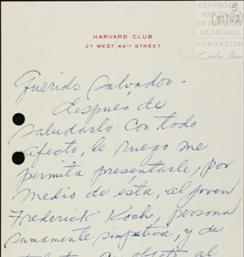 HARVARD CLUB
27 WEST 44TH STREET
CENTRO DE
DE MÉXICO
FUNDACIÓN
Querido Salvador-
despues de
saludarlo con todo
afecto, le ruego me
permita presentarle, por
medio de ésta, al joven
Frederick Koch, persona
sumamente simpática, y de